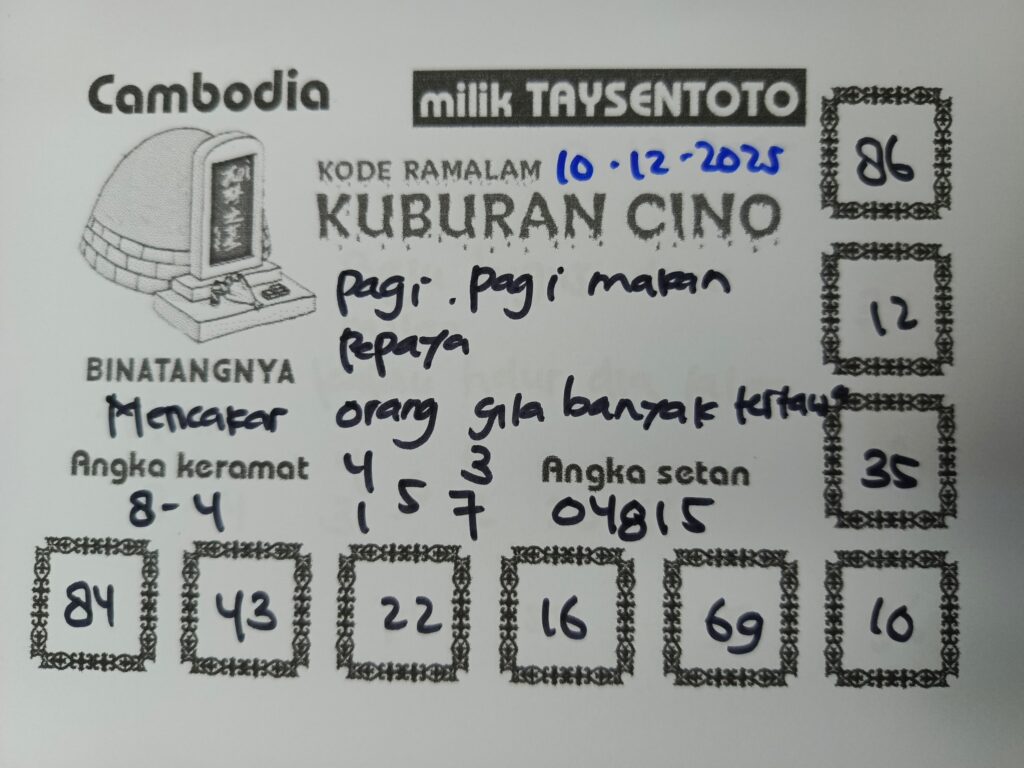 Cambodia
milik TAYSENTOTO
KODE RAMALAM 10-12-2025
KUBURAN CINO
pagi-pagi makan
pepaya
BINATANGNYA
Mencakar
orang gila banyak tertawa
Angka keramat
8-4
4 3
5
1 7
Angka setan
04815
86
12
35
84 43 22 16 69 10